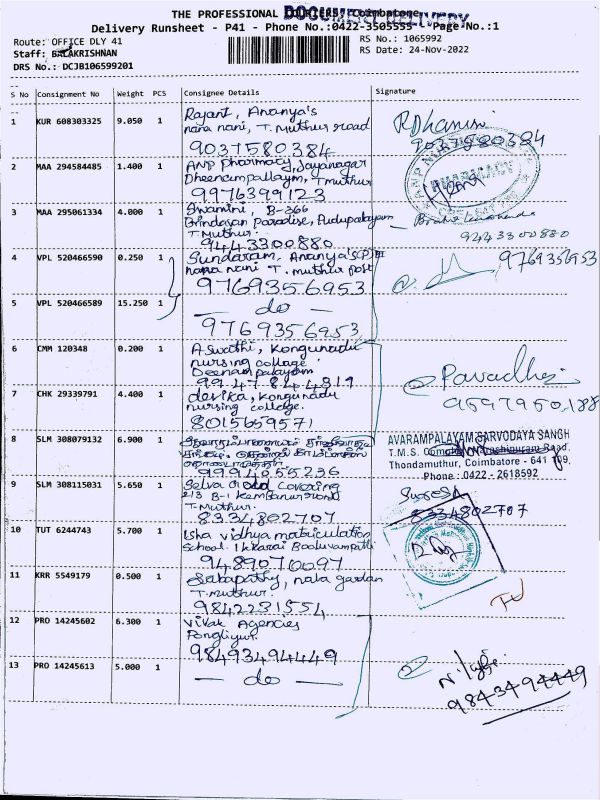 THE PROFESSIONAL COURIERS, Coimbatore
DOCUMENT DELIVERY
Delivery Runsheet - P41 - Phone No.:0422-3505555 Page No.:1
Route: OFFICE DLY 41
RS No.: 1065992
Staff: BALAKRISHNAN
RS Date: 24-Nov-2022
DRS No.: DCJB106599201
S No Consignment No Weight PCS Consignee Details Signature
1 KUR 608303325 9.050 1 Rajant, Ananya's
nana nani, T. muthur road
9037580384
2 MAA 294584485 1.400 1 ANP Pharmacy, Jayanagar
Dheenampallaym, T muthur
9976399123
PHARMACY
3 MAA 295061334 4.000 1 Swamini, B-366
Brindasan Paradise, Pudupalayam
T. muthur.
9443300880
9443300880
4 VPL 520466590 0.250 1 Sundaram, Ananya's
nana nani T. muthur post
9769356953
9769356953
5 VPL 520466589 15.250 1 — do —
9769356953
6 CMM 120348 0.200 1 Aswathi, Kongunadu
nursing collage
Deenampalayam
9947844819
7 CHK 29339791 4.400 1 devika, Kongunadu
nursing collage.
8015659571
9597950188
8 SLM 308079132 6.900 1
9994655236
AVARAMPALAYAM SARVODAYA SANGH
T.M.S. Road,
Thondamuthur, Coimbatore - 641 109.
Phone : 0422 - 2618592
9 SLM 308115031 5.650 1 Selva Gold Covering
213 B-1 Kembanur road
T. Muthur.
8334802707
8334802707
10 TUT 6244743 5.700 1 Isha vidhya matriculation
School. Ikkarai Booluvampatti
9489070097
11 KRR 5549179 0.500 1 Sabapathy, nala garden
T. muthur.
9842231554
12 PRO 14245602 6.300 1 Vivak Agencies
Pongliyur.
98493494449
13 PRO 14245613 5.000 1 — do —
9843494449